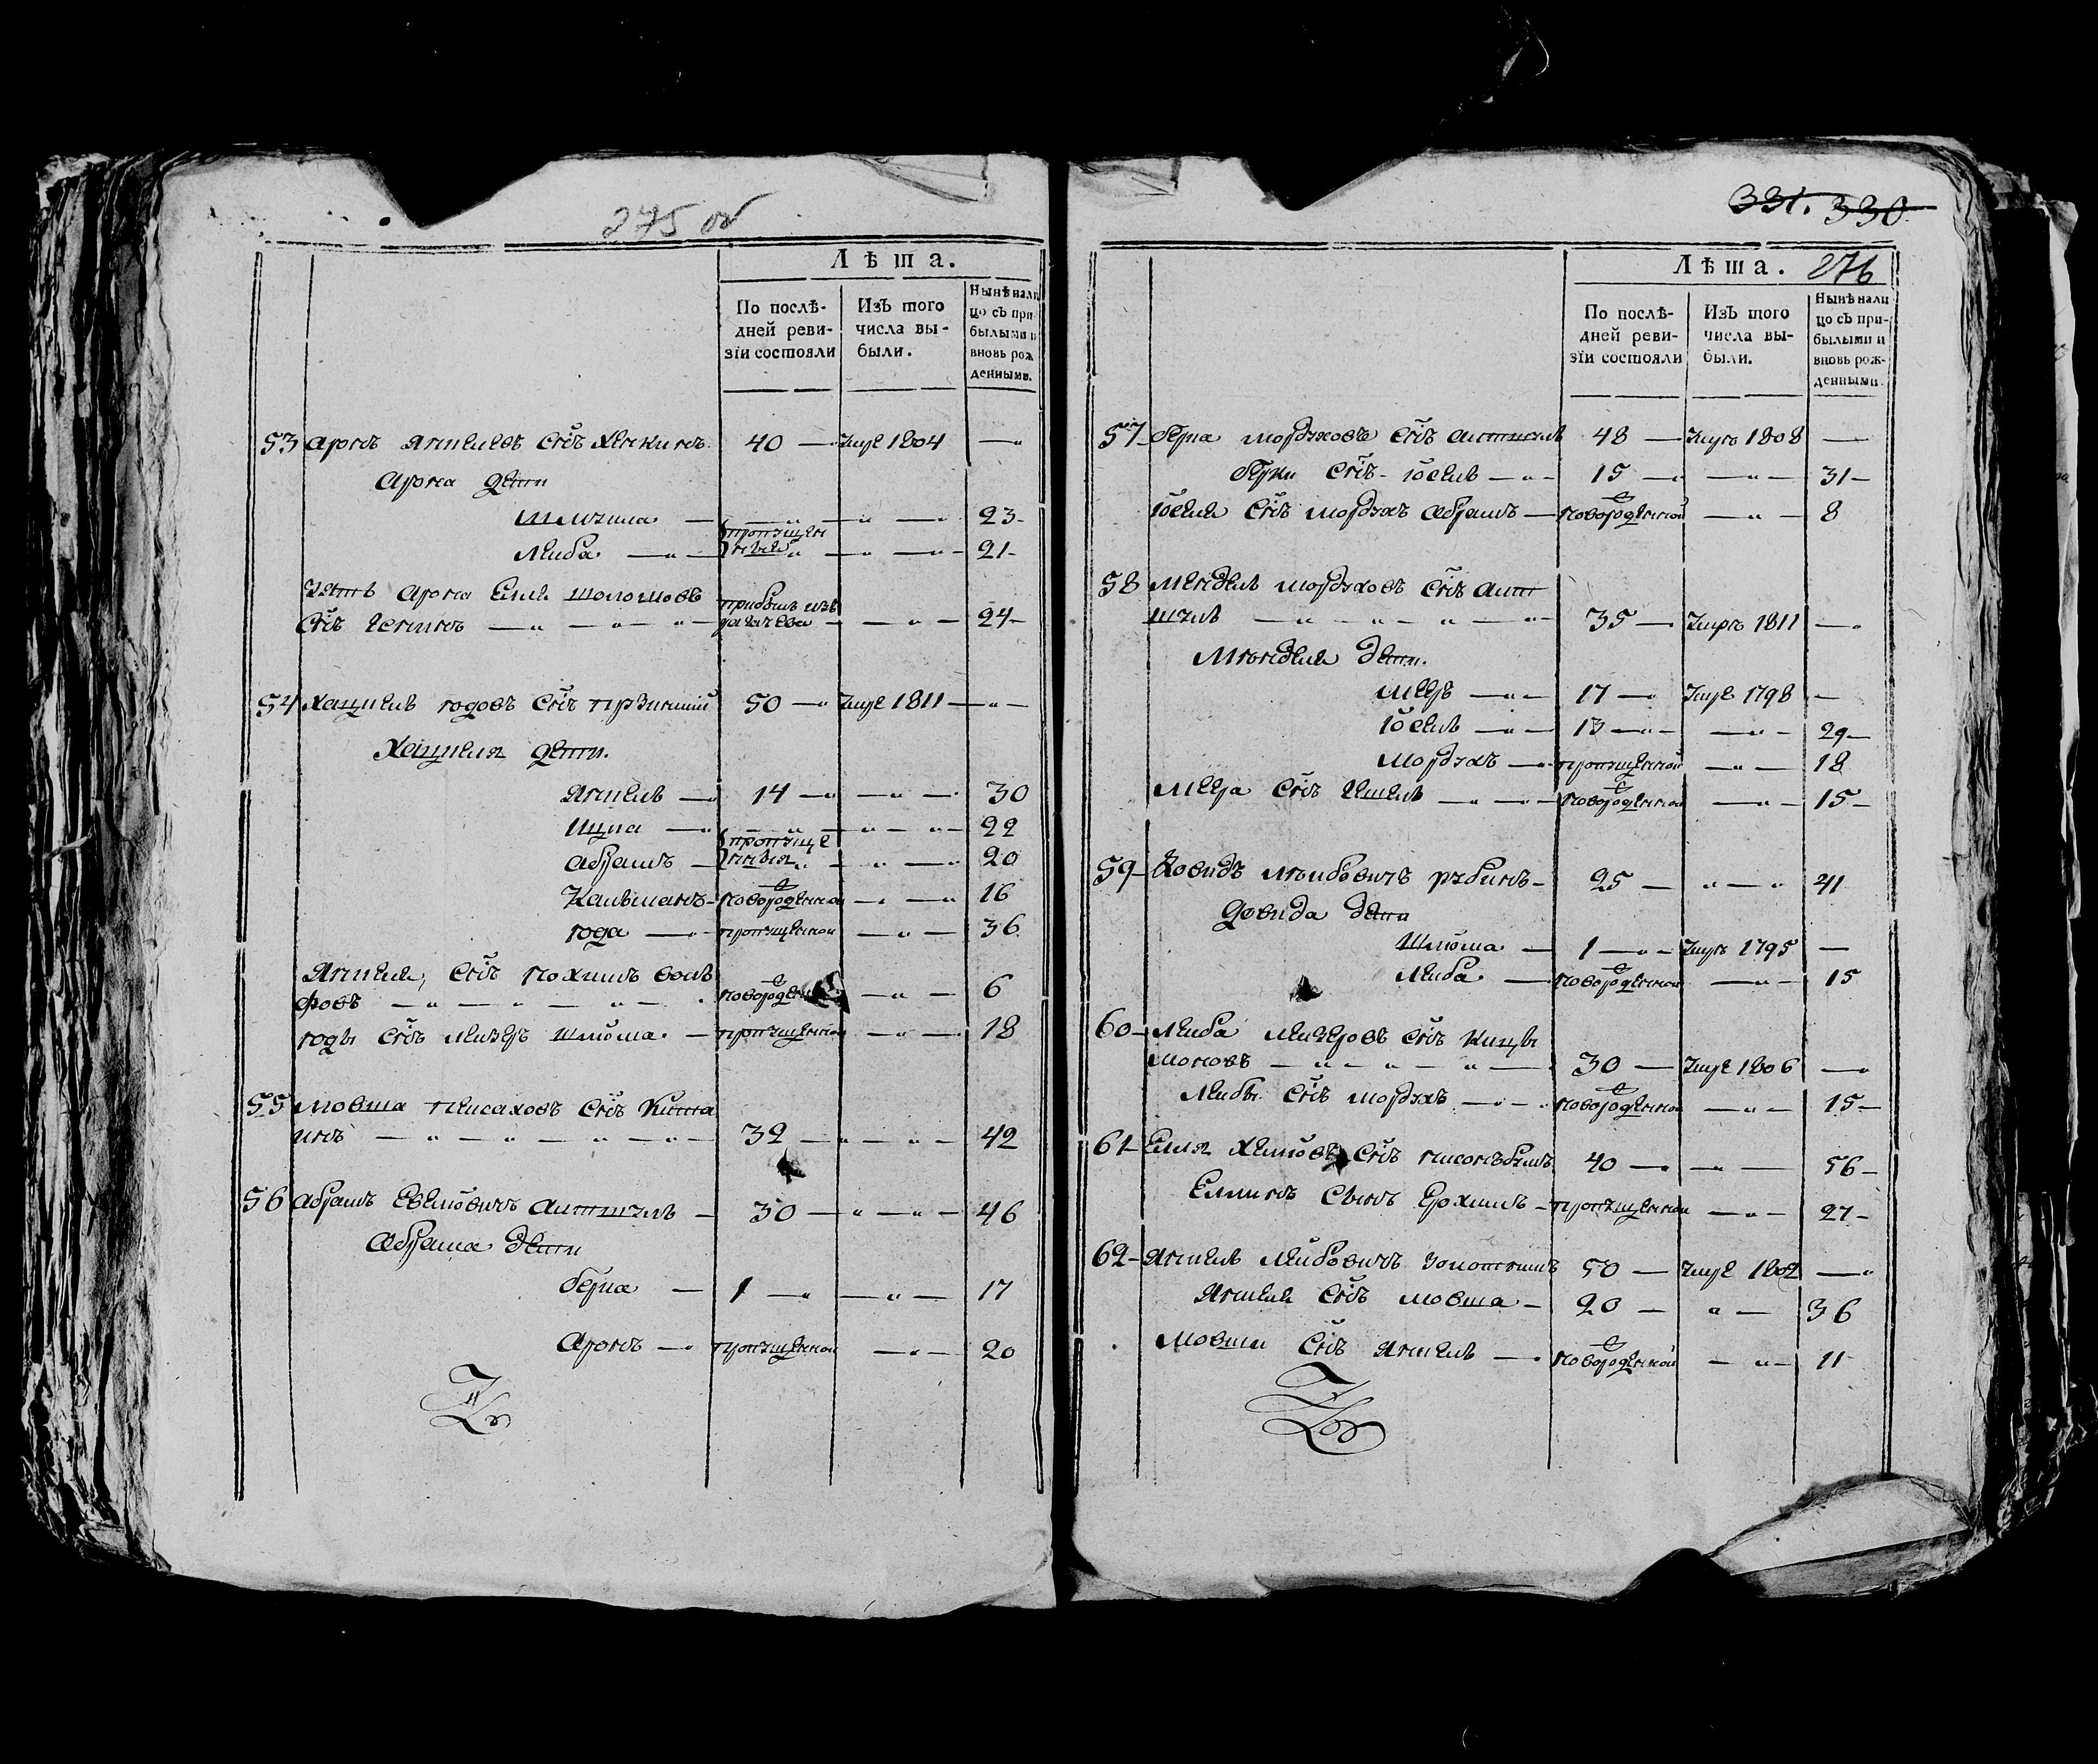 275 об
Лѣта.
По послѣ-
дней реви-
зіи состояли
Изъ того
числа вы-
были.
Нынѣ нали
цо съ при
былыми и
вновь рож
денными.
53 Аронъ Янкелевъ сынъ 40 — умре 1804 —
Арона дети
23
Лейба — пропущен
ные — 21
Зеть Арона Еля Шоломовъ прибылъ изъ
сынъ — 24
54 Хацкель Іодовъ сынъ 50 — умре 1811 —
Хацкеля дети.
Янкель — 14 — 30
Ицка — 22
Абрамъ — пропуще
нныя — 20
Кальманъ — новорожденной — 16
Іода — пропущенной — 36
Янкеля сынъ Нохимъ Воль
фовъ — новорожден — 6
Іоды сынъ Лейзеръ Шліома — пропущенной — 18
55 Мовша Пейсаховъ сынъ
инъ — 32 — 42
56 Абрамъ — 30 — 46
Абрама дети
Берка — 1 — 17
Аронъ — пропущенной — 20
331. 330
Лѣта. 276
По послѣ-
дней реви-
зіи состояли
Изъ того
числа вы-
были.
Нынѣ нали
цо съ при-
былыми и
вновь рож-
денными.
57 Берка Мордуховъ сынъ 48 — умръ 1808 —
Берки сынъ Іосель — 15 — 31
Іоселя сынъ Мордухъ Абрамъ — новорожденной — 8
58 Мендель Мордуховъ сынъ
35 — умръ 1811 —
Менделя дети.
Мееръ — 17 — умре 1798 —
Іосель — 13 — 29
Мордухъ — пропущенной — 18
Меера сынъ — новорожденной — 15
59 Довидъ Лейбовичъ Рубинъ — 25 — 41
Довида дети
Шліома — 1 — умръ 1795 —
Лейба — новорожденной — 15
60 Лейба Лейзеровъ сынъ
моновъ — 30 — умре 1806 —
Лейбы сынъ Мордухъ — новорожденной — 15
61 Еля сынъ 40 — 56
сынъ Ерохимъ — пропущенной — 27
62 Янкель Лейбовичъ 50 — умре 1802 —
Янкеля сынъ Мовша — 20 — 36
Мовши сынъ Янкель — новорожденной — 11